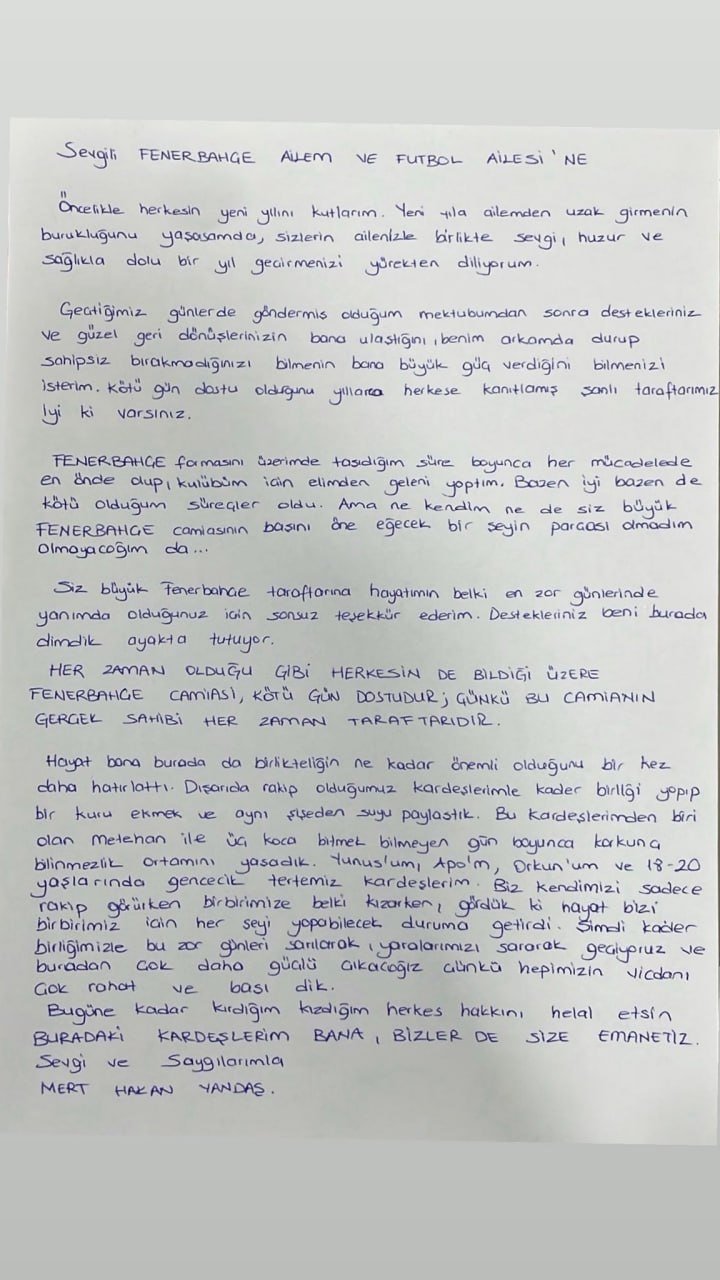 Sevgili FENERBAHÇE AİLEM VE FUTBOL AİLESİ'NE
Öncelikle herkesin yeni yılını kutlarım. Yeni yıla ailemden uzak girmenin
burukluğunu yaşasamda, sizlerin ailenizle birlikte sevgi, huzur ve
sağlıkla dolu bir yıl geçirmenizi yürekten diliyorum.
Geçtiğimiz günlerde göndermiş olduğum mektubumdan sonra destekleriniz
ve güzel geri dönüşlerinizin bana ulaştığını, benim arkamda durup
sahipsiz bırakmadığınızı bilmenin bana büyük güç verdiğini bilmenizi
isterim. Kötü gün dostu olduğunu yıllarca herkese kanıtlamış şanlı taraftarımız
İyi ki varsınız.
FENERBAHÇE formasını üzerimde taşıdığım süre boyunca her mücadelede
en önde olup, kulübüm için elimden geleni yaptım. Bazen iyi bazen de
kötü olduğum süreçler oldu. Ama ne kendim ne de siz büyük
FENERBAHÇE camiasının başını öne eğecek bir şeyin parçası olmadım
Olmayacağım da...
Siz büyük Fenerbahçe taraftarına hayatımın belki en zor günlerinde
yanımda olduğunuz için sonsuz teşekkür ederim. Destekleriniz beni burada
dimdik ayakta tutuyor.
HER ZAMAN OLDUĞU GİBİ HERKESİN DE BİLDİĞİ ÜZERE
FENERBAHÇE CAMİASI, KÖTÜ GÜN DOSTUDUR; ÇÜNKÜ BU CAMİANIN
GERÇEK SAHİBİ HER ZAMAN TARAFTARIDIR.
Hayat bana burada da birlikteliğin ne kadar önemli olduğunu bir kez
daha hatırlattı. Dışarıda rakip olduğumuz kardeşlerimle kader birliği yapıp
bir kuru ekmek ve aynı şişeden suyu paylaştık. Bu kardeşlerimden biri
olan metehan ile üç koca bitmek bilmeyen gün boyunca korkunç
bilinmezlik ortamını yaşadık. Yunus'um, Apo'm, Orkun'um ve 18-20
yaşlarında gencecik tertemiz kardeşlerim. Biz kendimizi sadece
rakip görürken birbirimize belki kızarken, gördük ki hayat bizi
birbirimiz için her şeyi yapabilecek duruma getirdi. Şimdi kader
birliğimizle bu zor günleri sarılarak, yaralarımızı sararak geçiyoruz ve
buradan çok daha güçlü çıkacağız çünkü hepimizin vicdanı
çok rahat ve başı dik.
Bugüne kadar kırdığım kızdığım herkes hakkını helal etsin
BURADAKİ KARDEŞLERİM BANA, BİZLER DE SİZE EMANETİZ.
Sevgi ve Saygılarımla
MERT HAKAN YANDAŞ.